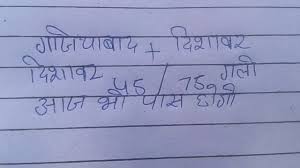 गाजियाबाद + दिशावर
दिशावर 45 / 75 गली
आज भी पास होगी